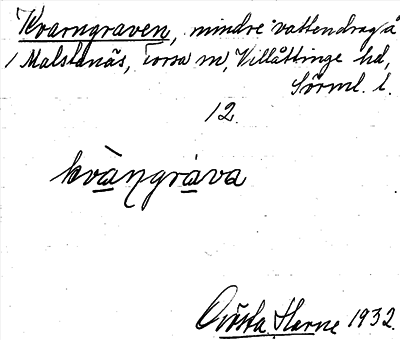 Kvarngraven, mindre vattendrag å
/ Malstanäs, Torsa m, Villåttinge hd,
Sörml. l.
12.
kvàṇgràva
Harne 1932.